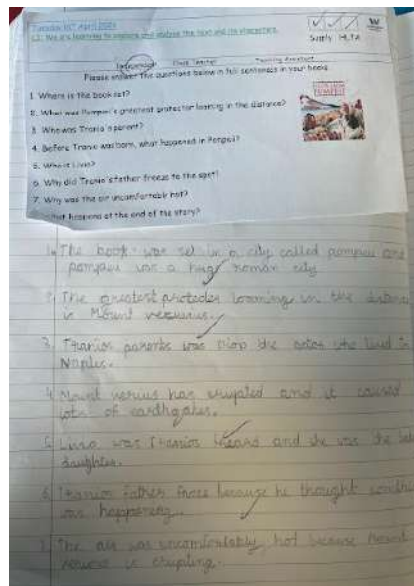 Tuesday 16th April 2024
LI: We are learning to explore and analyse the text and its characters.
Supply HLTA
Independent Class Teacher Teaching Assistant
Please answer the questions below in full sentences in your books.
1. Where is the book set?
2. What was Pompeii's greatest protector looming in the distance?
3. Who was Tranio's parent?
4. Before Tranio was born, what happened in Pompeii?
5. Who is Livia?
6. Why did Tranio's father freeze to the spot?
7. Why was the air uncomfortably hot?
What happens at the end of the story?
1. The book was set in a city called pompeii and
pompeii was a huge roman city
2. The greatest protecter looming in the distance
is Mount vesuvius.
3. Tranios parents was Dion the actor who lived in
Naples.
4. Mount has erupted and it caused
lots of
5. Livia was Tranios and she was the
daughter.
6. Tranios father froze because he thought
was happening.
7. The air was uncomfortably hot because Mount
is erupting.